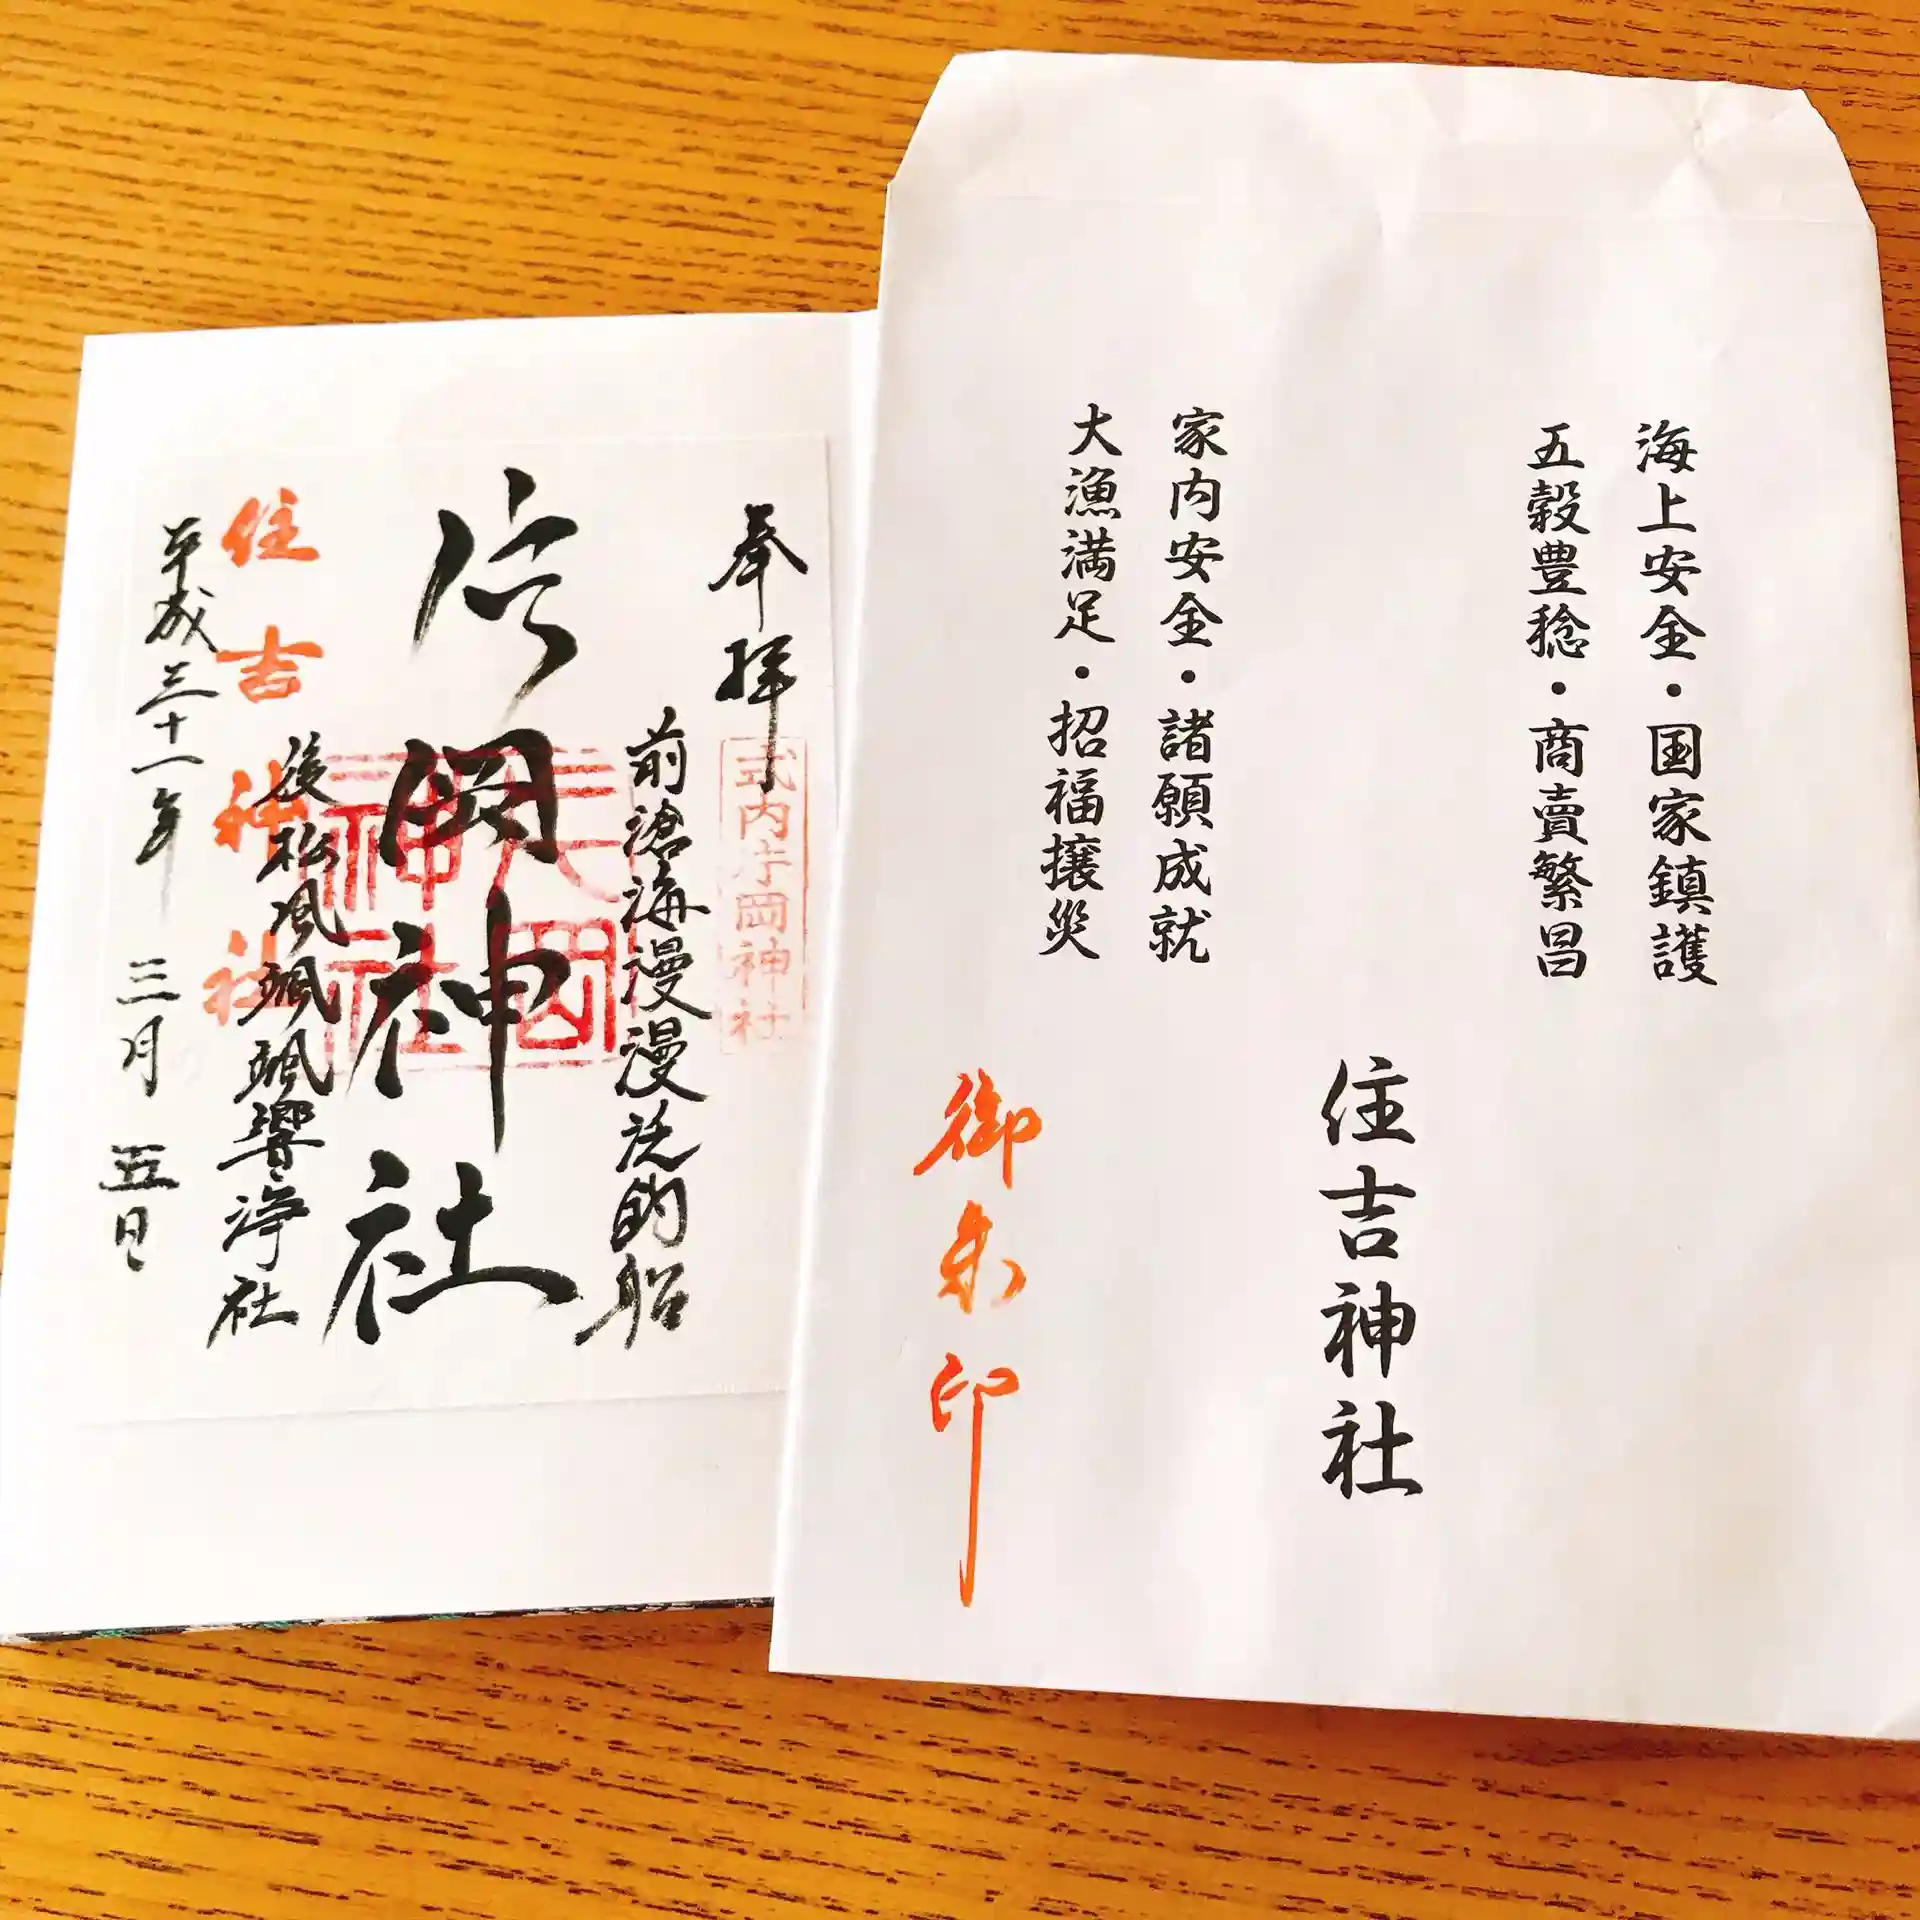 海上安全・国家鎮護
五穀豊稔・商賣繁昌
住吉神社
家内安全・諸願成就
大漁満足・招福攘災
御朱印
奉拝
式内片岡神社
前滄海漫漫泛釣船
片岡神社
後松風颯颯響浄社
住吉神社
平成三十一年 三月 五日